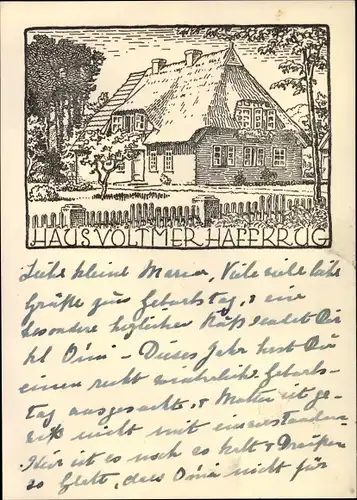 HAUS VOLTMER HAFFKRUG
Liebe kleine Viele viele
Grüße zum Geburtstag, & eine
besondere herzlichen Kuß sendet Dir
Omi – Dieses Jahr hast Du
einen recht Geburts-
Tag ausgesucht, & Mutter ist ge-
wiß nicht mit einverstanden.
Hier ist es noch so kalt & Draußen
so Glatt, dass Omi nicht für